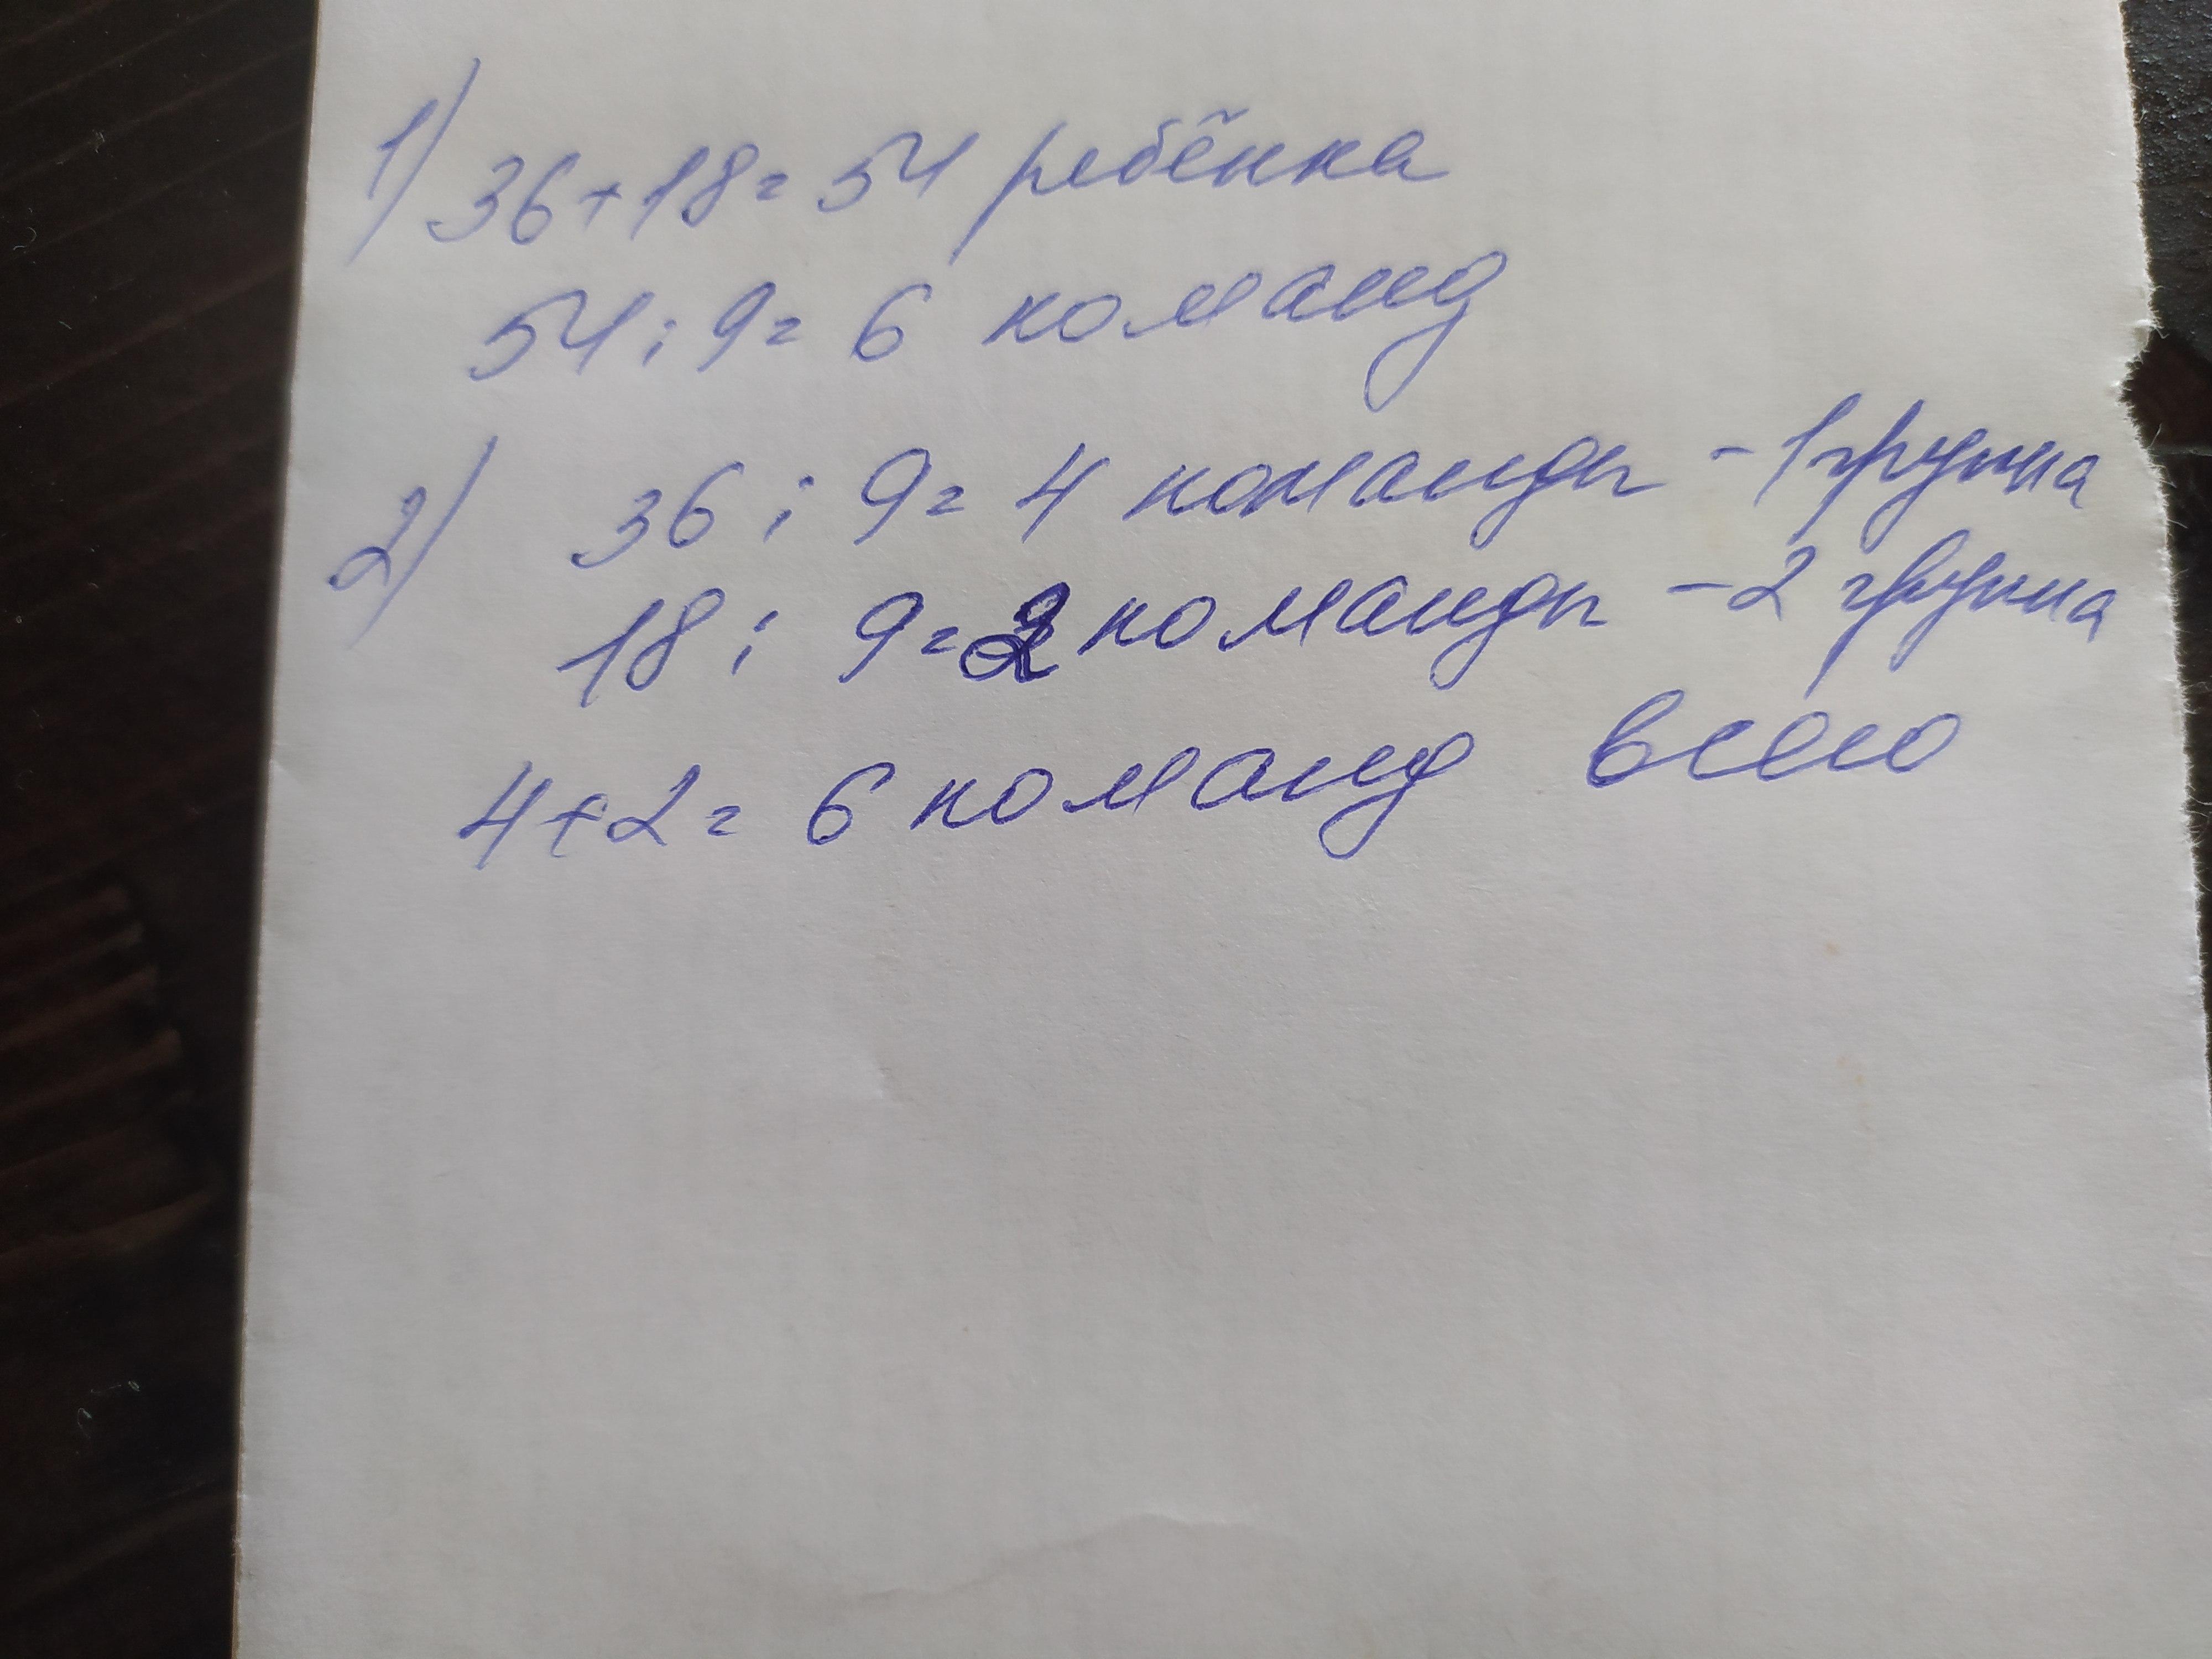 1) 36+18=54 ребёнка
54:9=6 команд
2) 36:9=4 команды - 1 группа
18:9=2 команды - 2 группа
4+2=6 команд всего